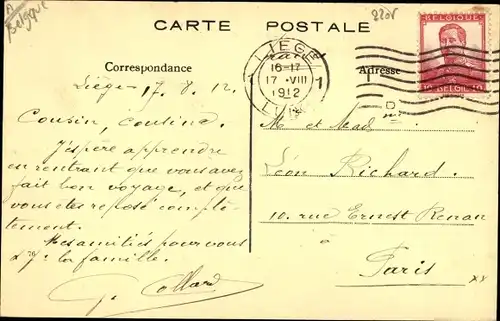 Belgique
CARTE POSTALE
2208
BELGIQUE
10 BELGIE 10
1 LIÈGE 1
16-17
17 VIII
1912
LUIK
Correspondance
Adresse
Liège 17. 8. 12.
Cousin, cousine.
J'espère apprendre
en rentrant que vous avez
fait bon voyage, et que
vous êtes reposé complè-
tement.
Mes amitiés pour vous
& la famille.
G. Collard
M et Mad
Léon Richard.
10. rue Ernest Renan
Paris
XV